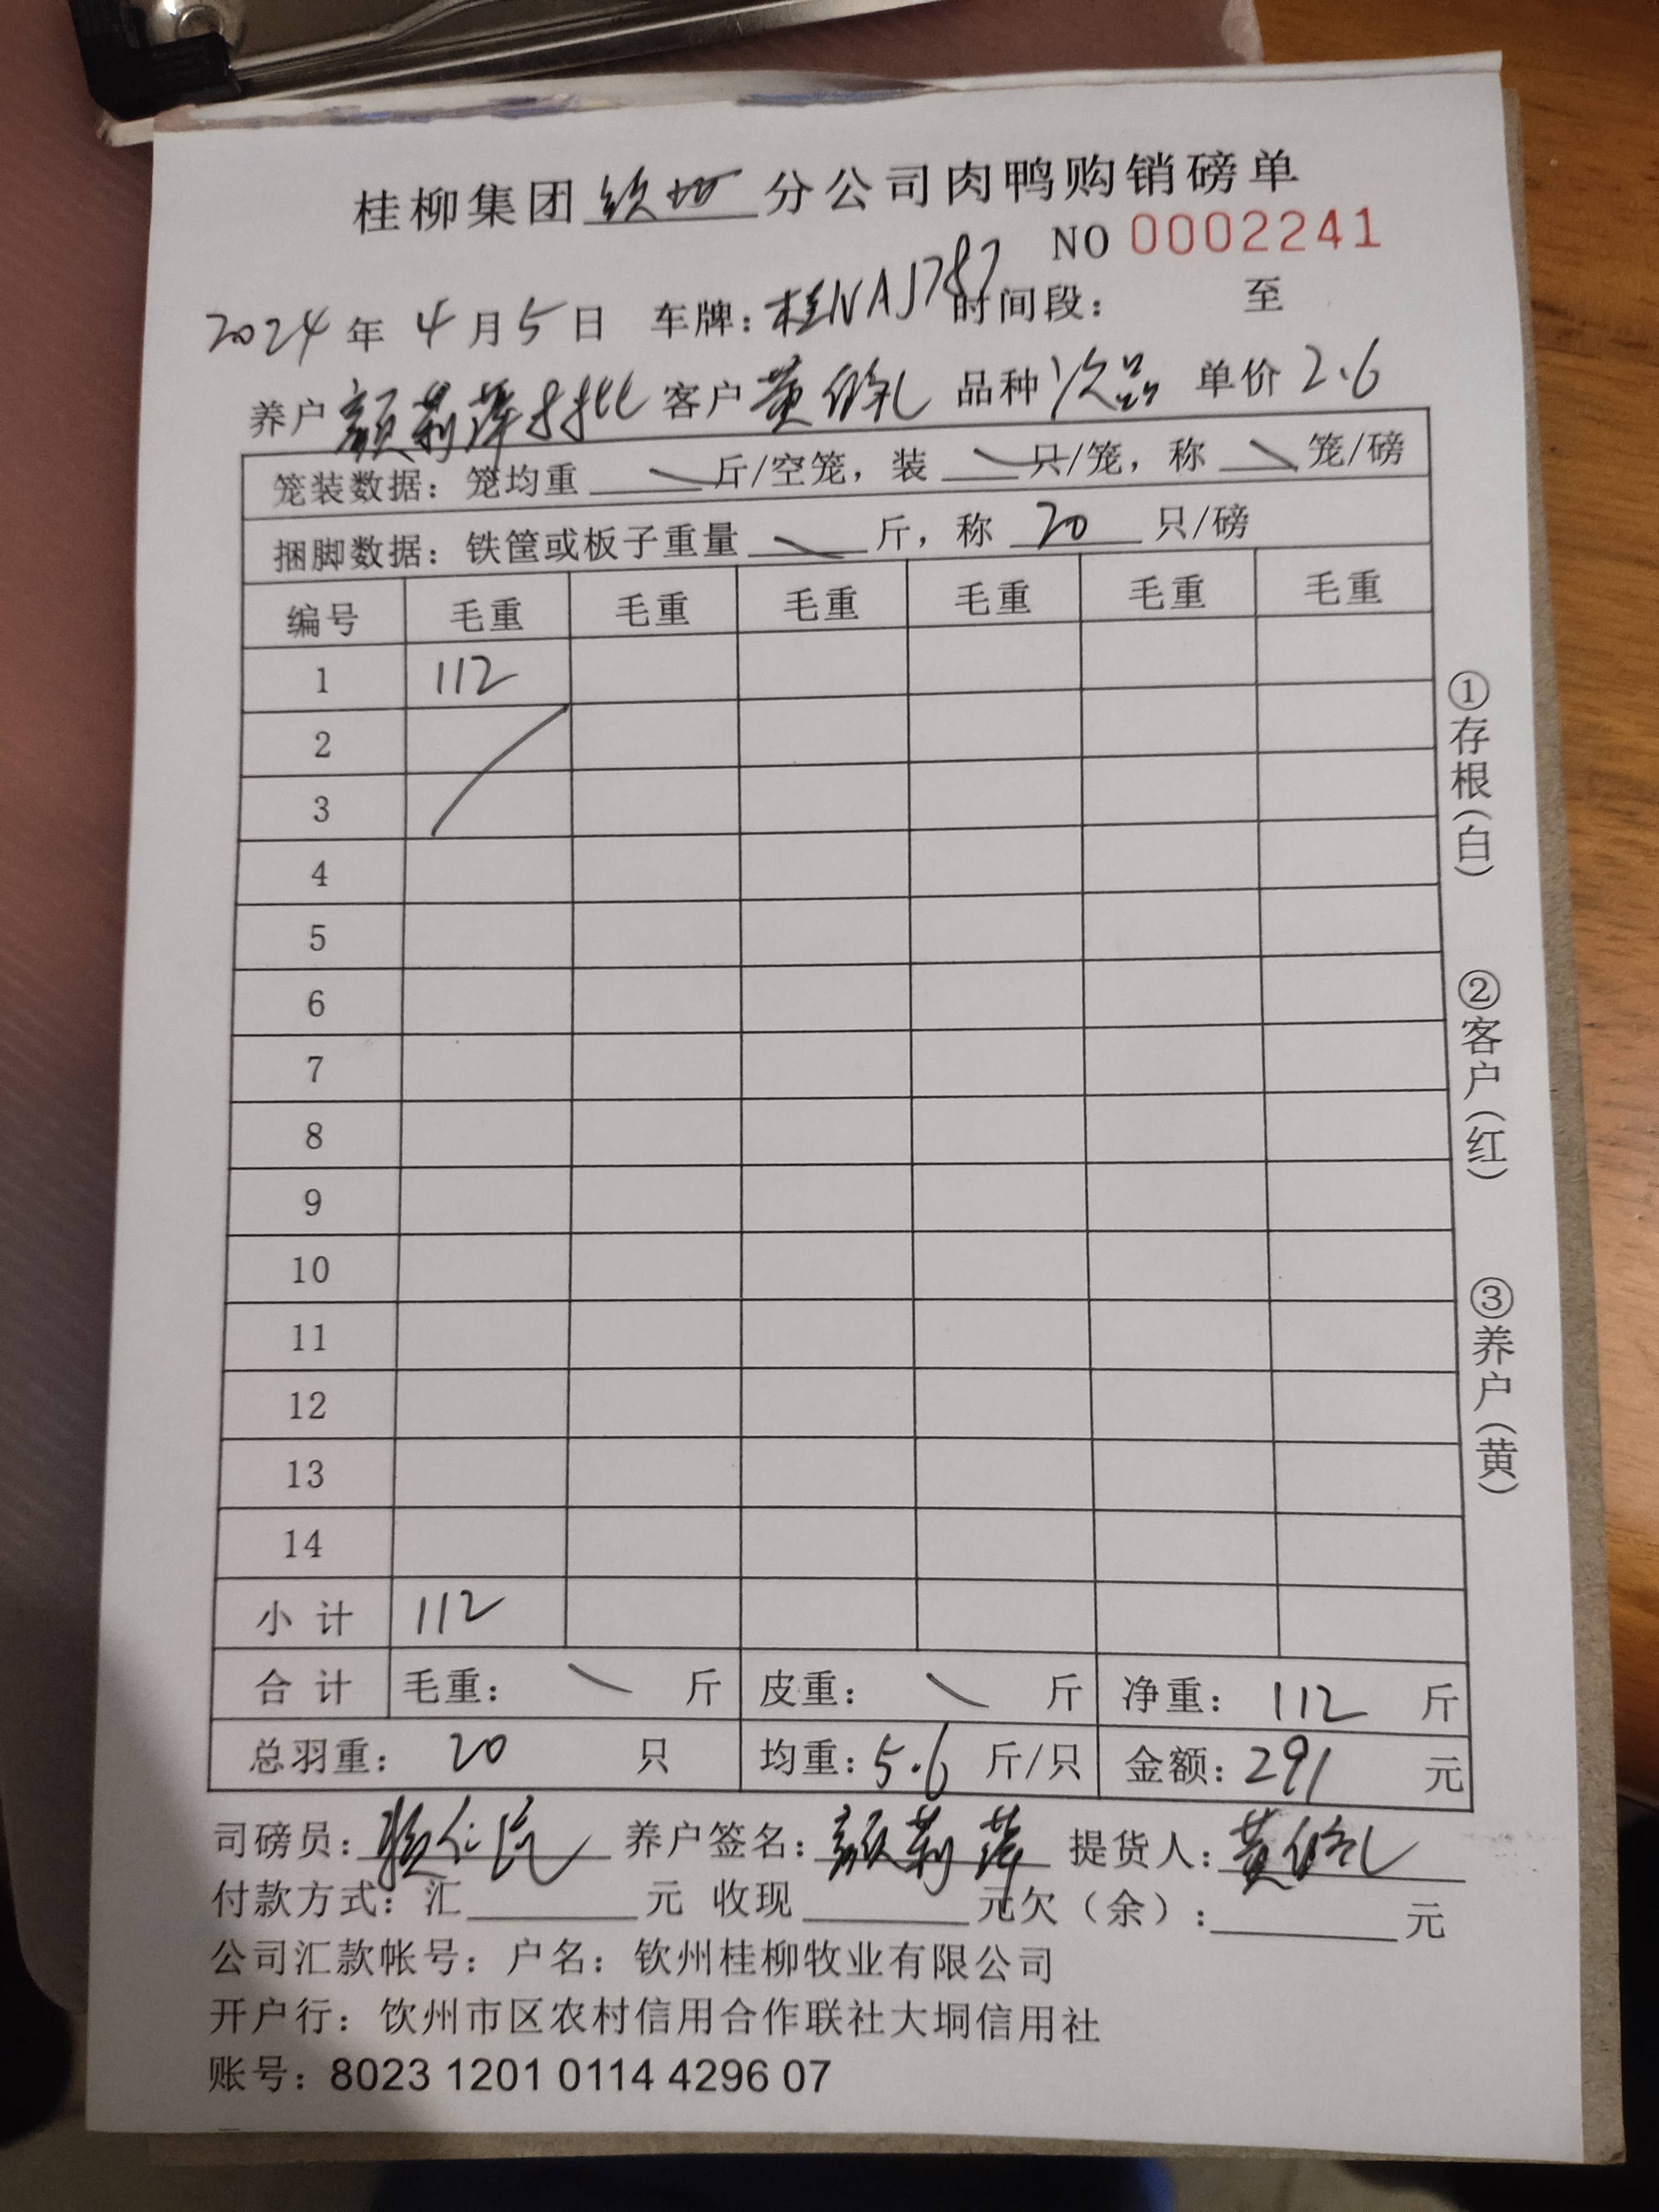 桂柳集团钦州分公司肉鸭购销磅单
NO 0002241
2024年4月5日 车牌:桂NAJ787 时间段: 至
养户颜莉萍 客户黄 品种次品 单价2.6
笼装数据:笼均重 斤/空笼,装 只/笼,称 笼/磅
捆脚数据:铁筐或板子重量 斤,称 20 只/磅
编号 毛重 毛重 毛重 毛重 毛重 毛重
1 112
2
3
4
5
6
7
8
9
10
11
12
13
14
小计 112
合计 毛重: 斤 皮重: 斤 净重:112 斤
总羽重:20 只 均重:5.6 斤/只 金额:291 元
司磅员: 养户签名:颜莉萍 提货人:黄
付款方式:汇 元 收现 元欠(余): 元
公司汇款帐号:户名:钦州桂柳牧业有限公司
开户行:饮州市区农村信用合作联社大垌信用社
账号:8023 1201 0114 4296 07
①存根(白)
②客户(红)
③养户(黄)